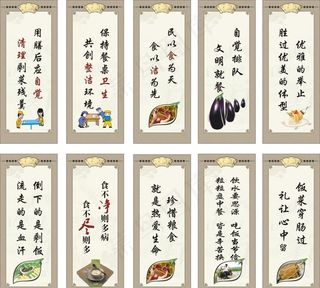 用膳后应自觉
清理剩菜残羹
保持餐桌卫生
共创整洁环境
民以食为天
食以洁为先
自觉排队
文明就餐
优雅的举止
胜过优美的体型
倒下的是剩饭
流走的是血汗
食不净则多病
食不尽则多
珍惜粮食
就是热爱生命
饮水要思源 吃饭当节俭
粒粒盘中餐 皆是辛苦换
饭菜穿肠过
礼让心中留